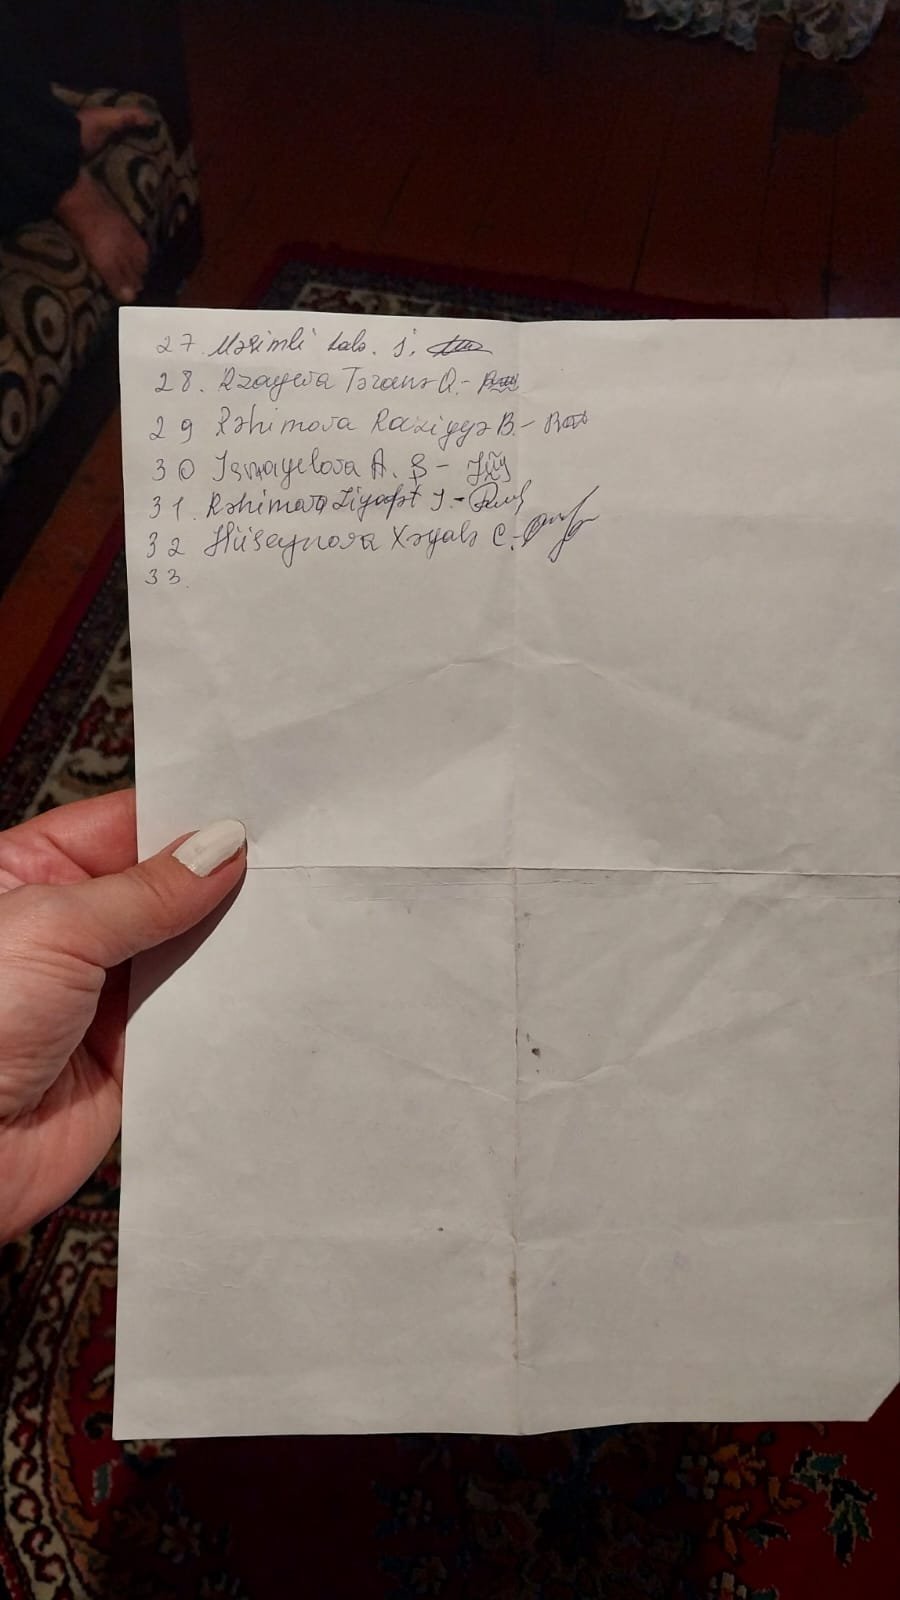 27. Mərimli Lalə. İ.
28. Rzayeva Təranə Q.-
29 Rəhimova Raziyyə B.-
30 İsmayelova A. Ş -
31. Rəhimova Ziyafət İ.-
32 Hüseynova Xəyalə C.-
33.